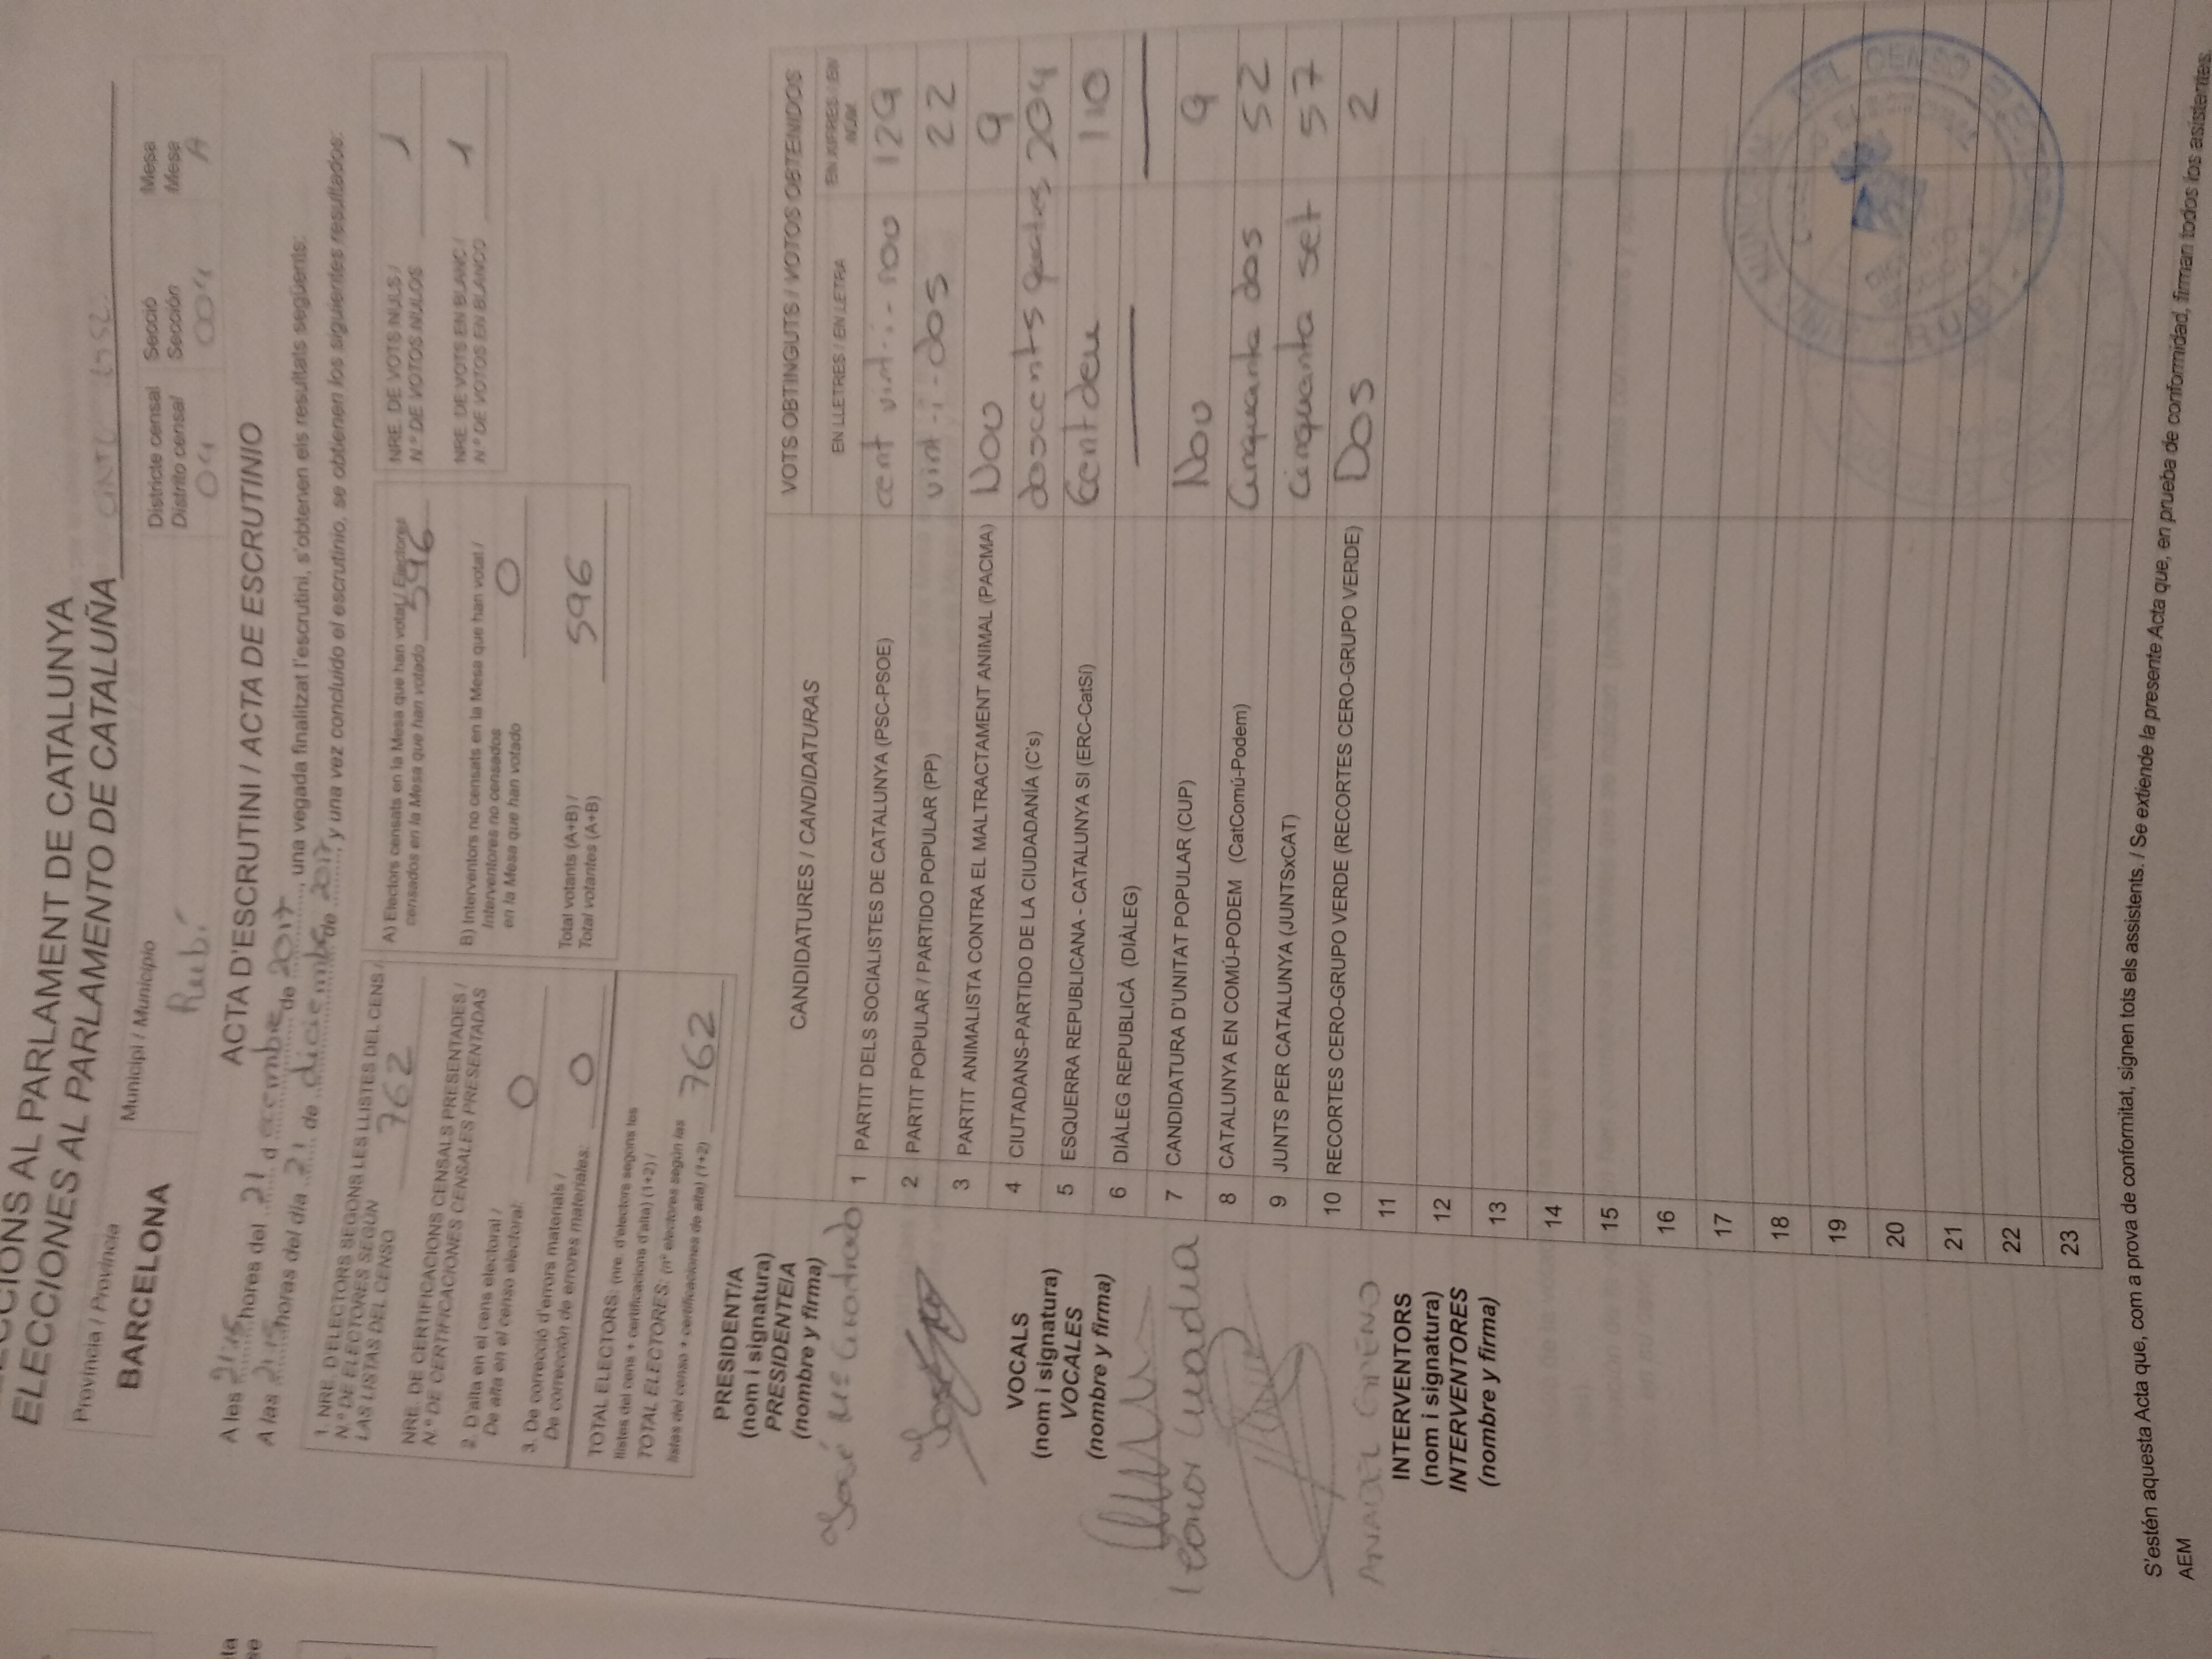 ECCIONS AL PARLAMENT DE CATALUNYA
ELECCIONES AL PARLAMENTO DE CATALUÑA
Província / Provincia
BARCELONA
Municipi / Municipio
Rubí
Districte censal
Distrito censal
04
Secció
Sección
004
Mesa
Mesa
A
ACTA D'ESCRUTINI / ACTA DE ESCRUTINIO
A les 21:15 hores del 21 d ecembre de 2017, una vegada finalitzat l'escrutini, s'obtenen els resultats següents:
A las 21:15 horas del día 21 de diciembre de 2017 y una vez concluido el escrutinio, se obtienen los siguientes resultados:
1. NRE. D'ELECTORS SEGONS LES LLISTES DEL CENS /
N.º DE ELECTORES SEGÚN
LAS LISTAS DEL CENSO 762
NRE. DE CERTIFICACIONS CENSALS PRESENTADES /
N.º DE CERTIFICACIONES CENSALES PRESENTADAS
2. D'alta en el cens electoral /
De alta en el censo electoral: 0
3. De correcció d'errors materials /
De corrección de errores materiales: 0
TOTAL ELECTORS: (nre. d'electors segons les
llistes del cens + certificacions d'alta) (1+2) /
TOTAL ELECTORES: (nº electores según las
listas del censo + certificaciones de alta) (1+2) 762
A) Electors censats en la Mesa que han votat / Electores
censados en la Mesa que han votado 596
B) Interventors no censats en la Mesa que han votat /
Interventores no censados
en la Mesa que han votado 0
Total votants (A+B) /
Total votantes (A+B) 596
NRE. DE VOTS NULS /
N.º DE VOTOS NULOS 1
NRE. DE VOTS EN BLANC /
N.º DE VOTOS EN BLANCO 1
PRESIDENT/A
(nom i signatura)
PRESIDENTE/A
(nombre y firma)
José Mª Cuadrado
VOCALS
(nom i signatura)
VOCALES
(nombre y firma)
Leonor
ANABEL
INTERVENTORS
(nom i signatura)
INTERVENTORES
(nombre y firma)
CANDIDATURES / CANDIDATURAS
VOTS OBTINGUTS / VOTOS OBTENIDOS
EN LLETRES / EN LETRA
EN XIFRES / EN
NÚM.
1 PARTIT DELS SOCIALISTES DE CATALUNYA (PSC-PSOE) cent vint-i-nou 129
2 PARTIT POPULAR / PARTIDO POPULAR (PP) vint-i-dos 22
3 PARTIT ANIMALISTA CONTRA EL MALTRACTAMENT ANIMAL (PACMA) Nou 9
4 CIUTADANS-PARTIDO DE LA CIUDADANÍA (C's) doscents quatre 204
5 ESQUERRA REPUBLICANA - CATALUNYA SI (ERC-CatSí) Cent deu 110
6 DIÀLEG REPUBLICÀ (DIÀLEG)
7 CANDIDATURA D'UNITAT POPULAR (CUP) Nou 9
8 CATALUNYA EN COMÚ-PODEM (CatComú-Podem) Cinquanta dos 52
9 JUNTS PER CATALUNYA (JUNTSxCAT) Cinquanta set 57
10 RECORTES CERO-GRUPO VERDE (RECORTES CERO-GRUPO VERDE) Dos 2
11
12
13
14
15
16
17
18
19
20
21
22
23
S'estén aquesta Acta que, com a prova de conformitat, signen tots els assistents. / Se extiende la presente Acta que, en prueba de conformidad, firman todos los asistentes.
AEM